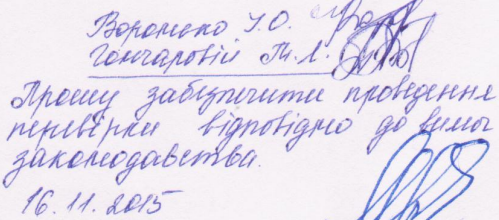 Вороненко І.О.
Гончаровій Т.Л.
Прошу забезпечити проведення
перевірки відповідно до вимог
законодавства.
16.11.2015